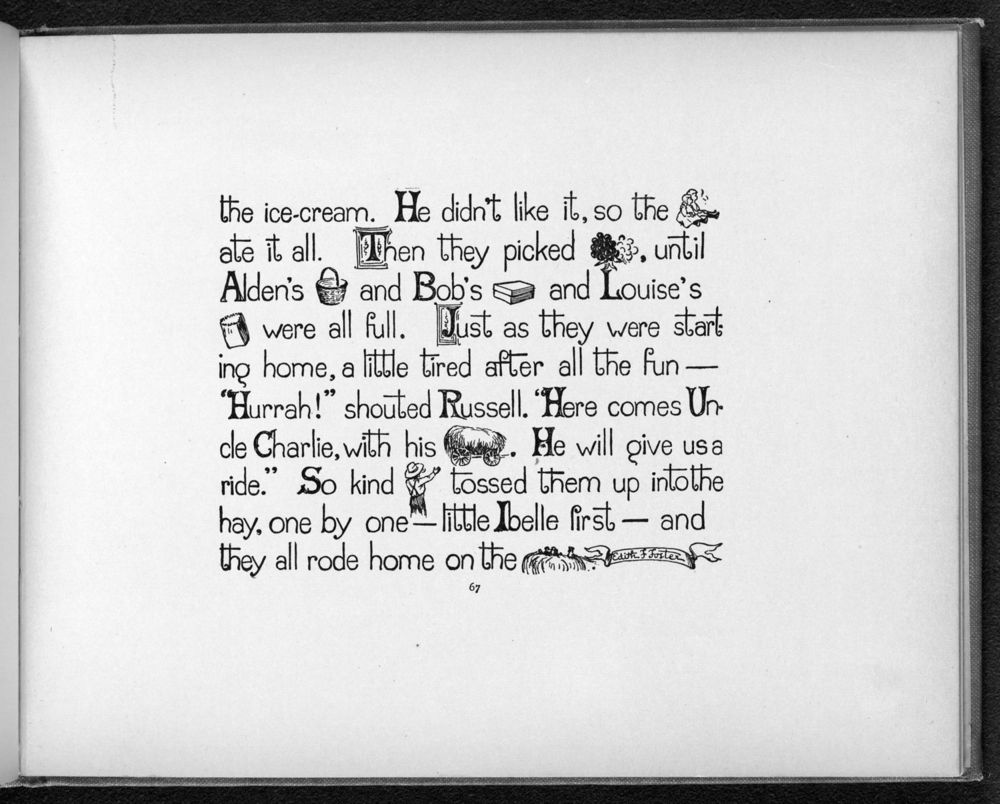 the ice-cream. He didn't like it, so the
ate it all. Then they picked , until
Alden's and Bob's and Louise's
were all full. Just as they were start
ing home, a little tired after all the fun —
"Hurrah!" shouted Russell. "Here comes Un-
cle Charlie, with his . He will give us a
ride." So kind tossed them up into the
hay, one by one — little Ibelle first — and
they all rode home on the . Edith F Foster
67